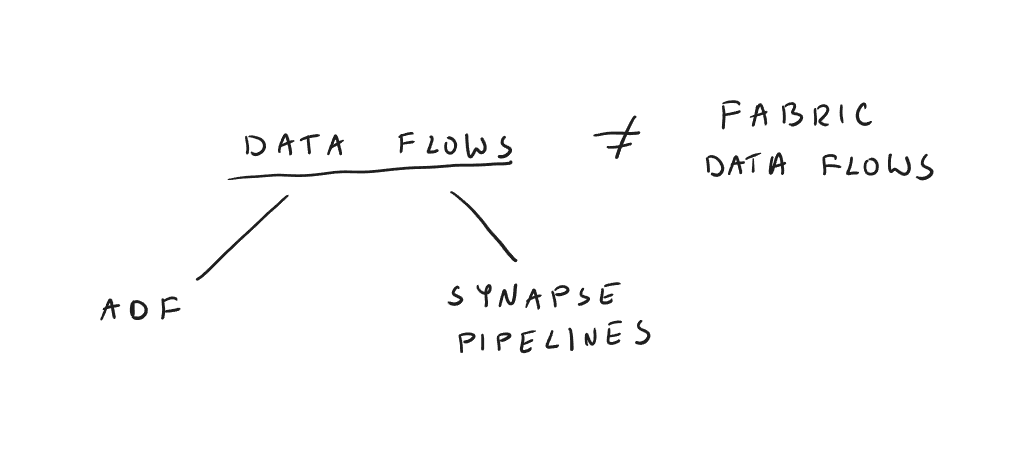 DATA FLOWS ≠ FABRIC
DATA FLOWS
ADF
SYNAPSE
PIPELINES